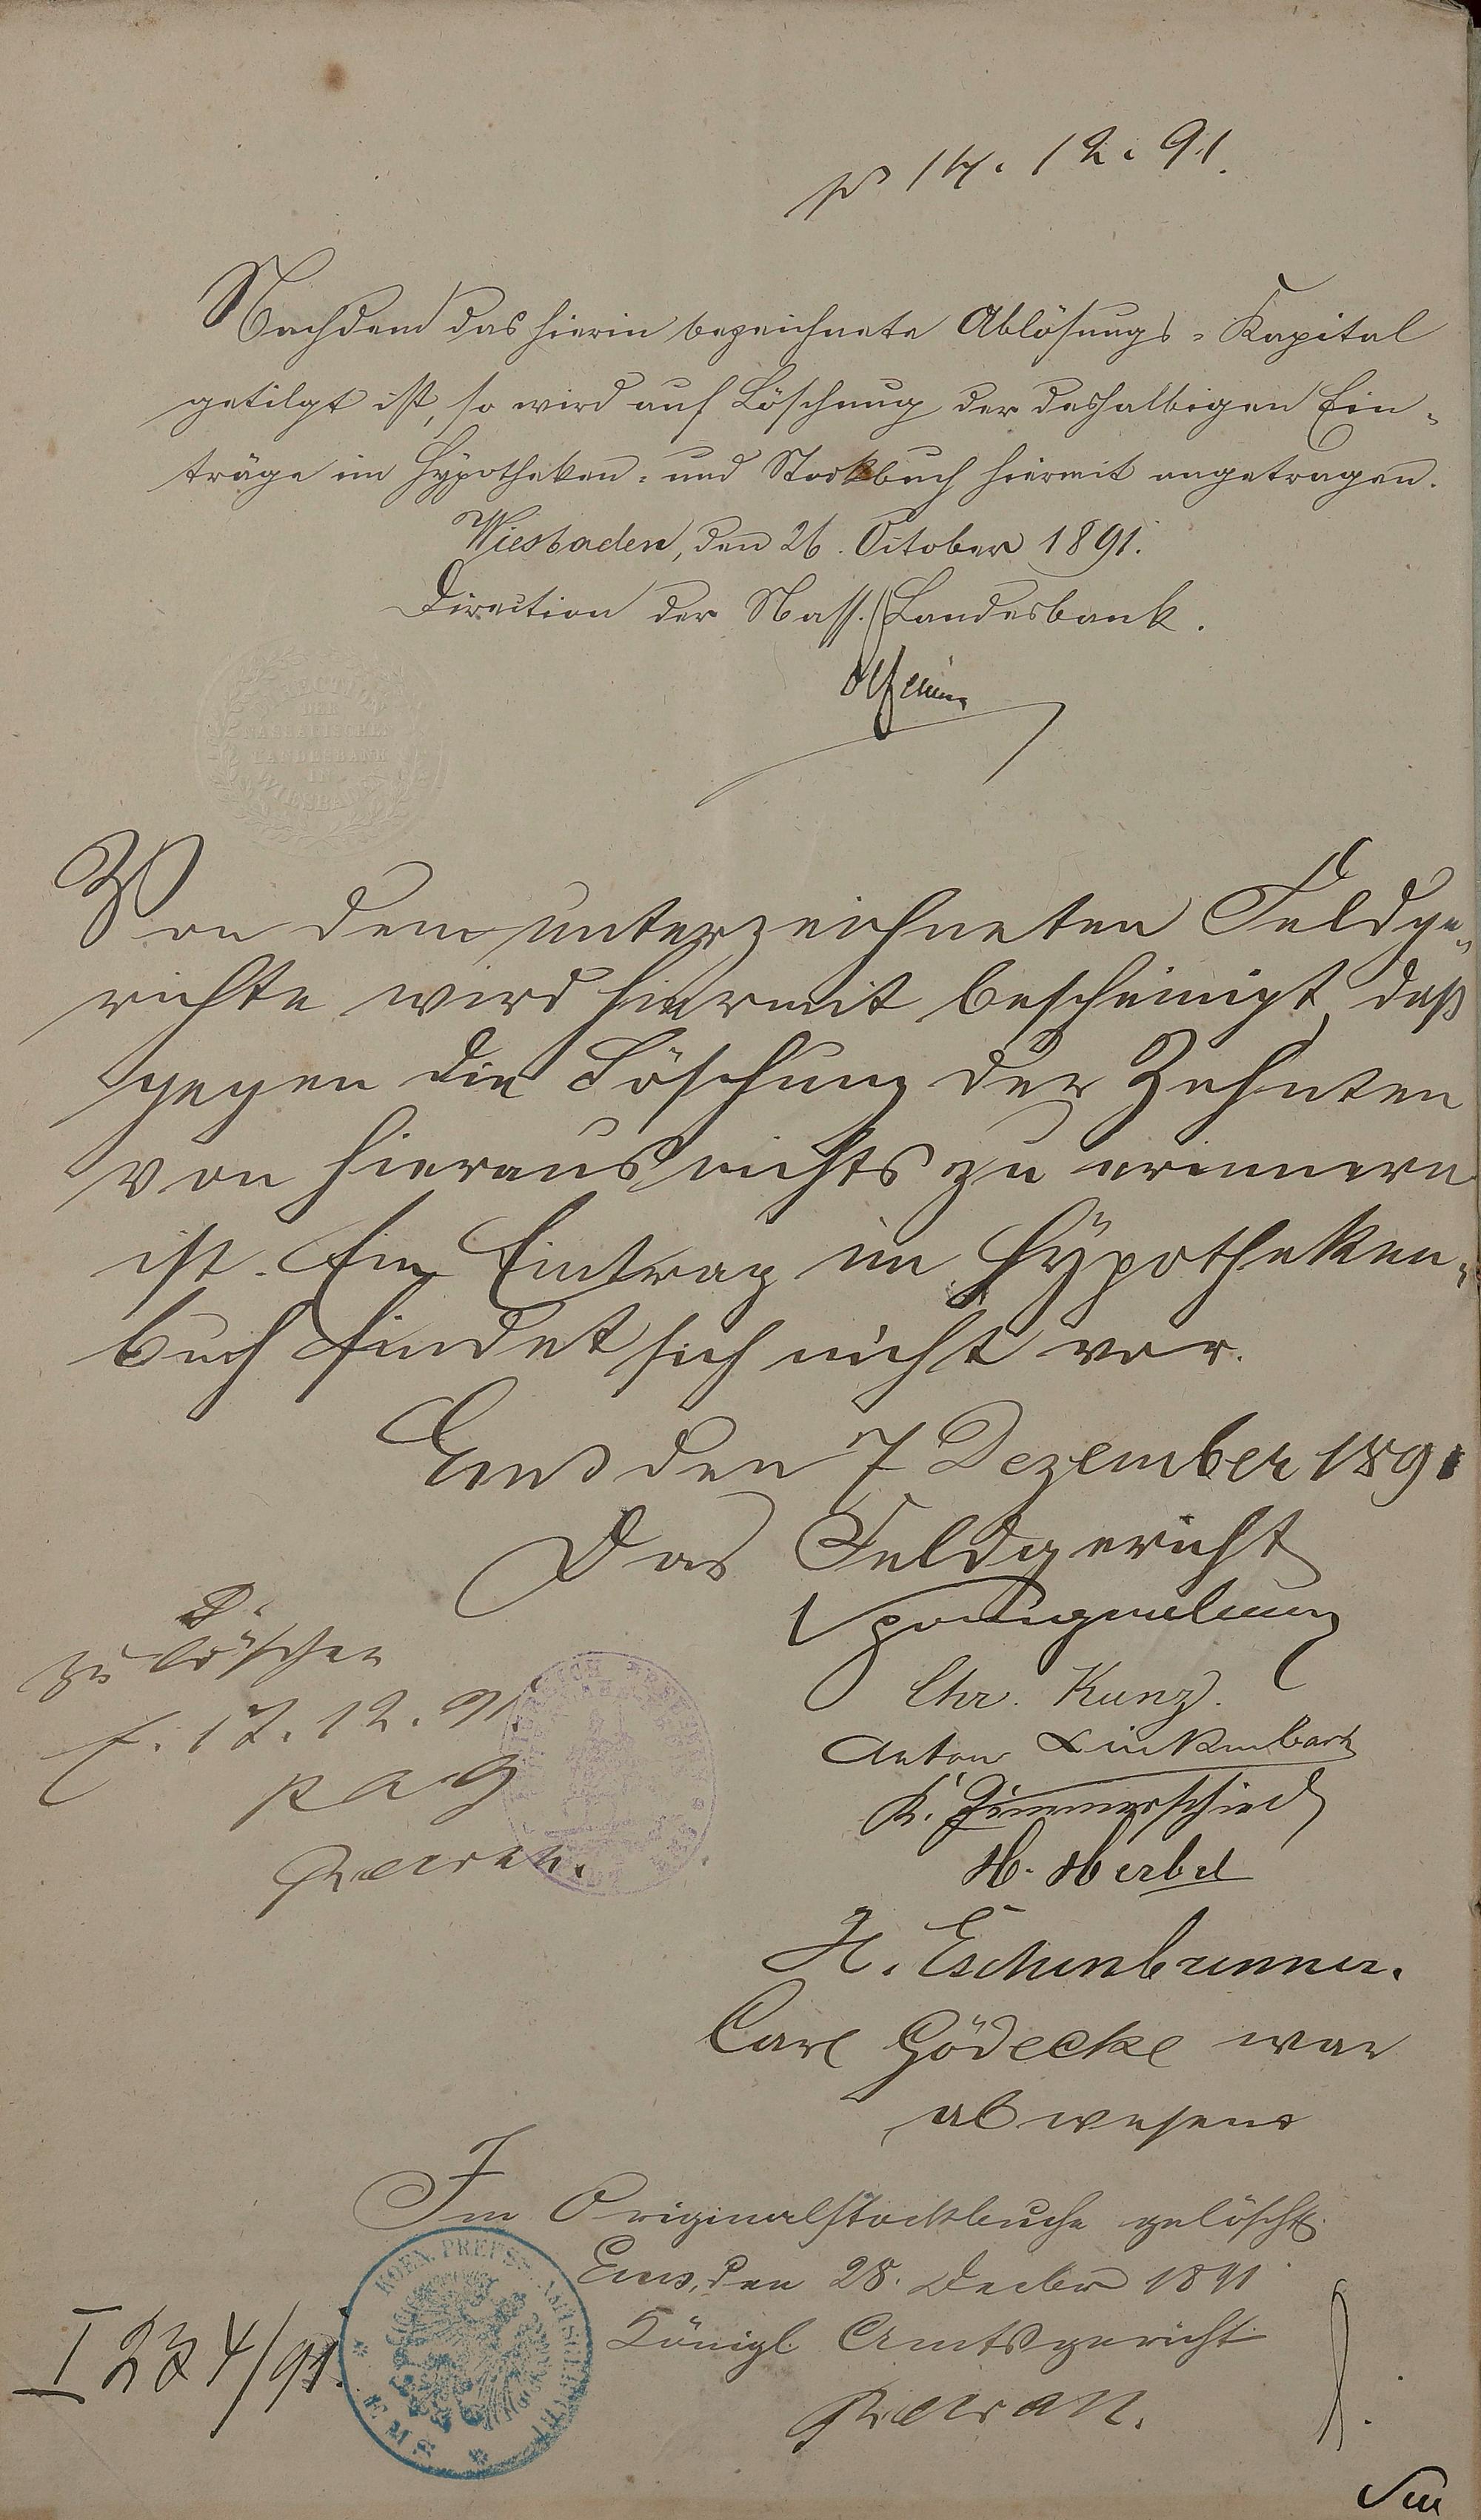 14. 12. 91.
Nachdem das hierin bezeichnete Ablösungs-Kapital
getilgt ist, so wird auf Löschung der deshalbigen Ein-
träge im Hypotheken- und Stockbuch hiermit angetragen.
Wiesbaden, den 26. October 1891.
Direction der Nass. Landesbank.
DIRECTION
DER
NASSAUISCHEN
LANDESBANK
IN
WIESBADEN
Von dem unterzeichneten Feldge-
richte wird hiermit bescheinigt, daß
gegen die Löschung der Zehnten
von hieraus nichts zu erinnern
ist. Ein Eintrag im Hypotheken-
buch findet sich nicht vor.
Ems den 7 Dezember 1891
Das Feldgericht
Spangenberg
Chr. Kunz.
Anton Linkenbach
K. Zimmerschied
H. Herbel
H. Eschenbrenner.
Carl Gödecke war
abwesend
zu löschen
E. 17. 12. 91.
Im Originalstockbuche gelöscht.
Ems, den 28. Decbr 1891
Königl. Amtsgericht
KOEN. PREUSS. AMTSGERICHT
EMS
I 234/91.